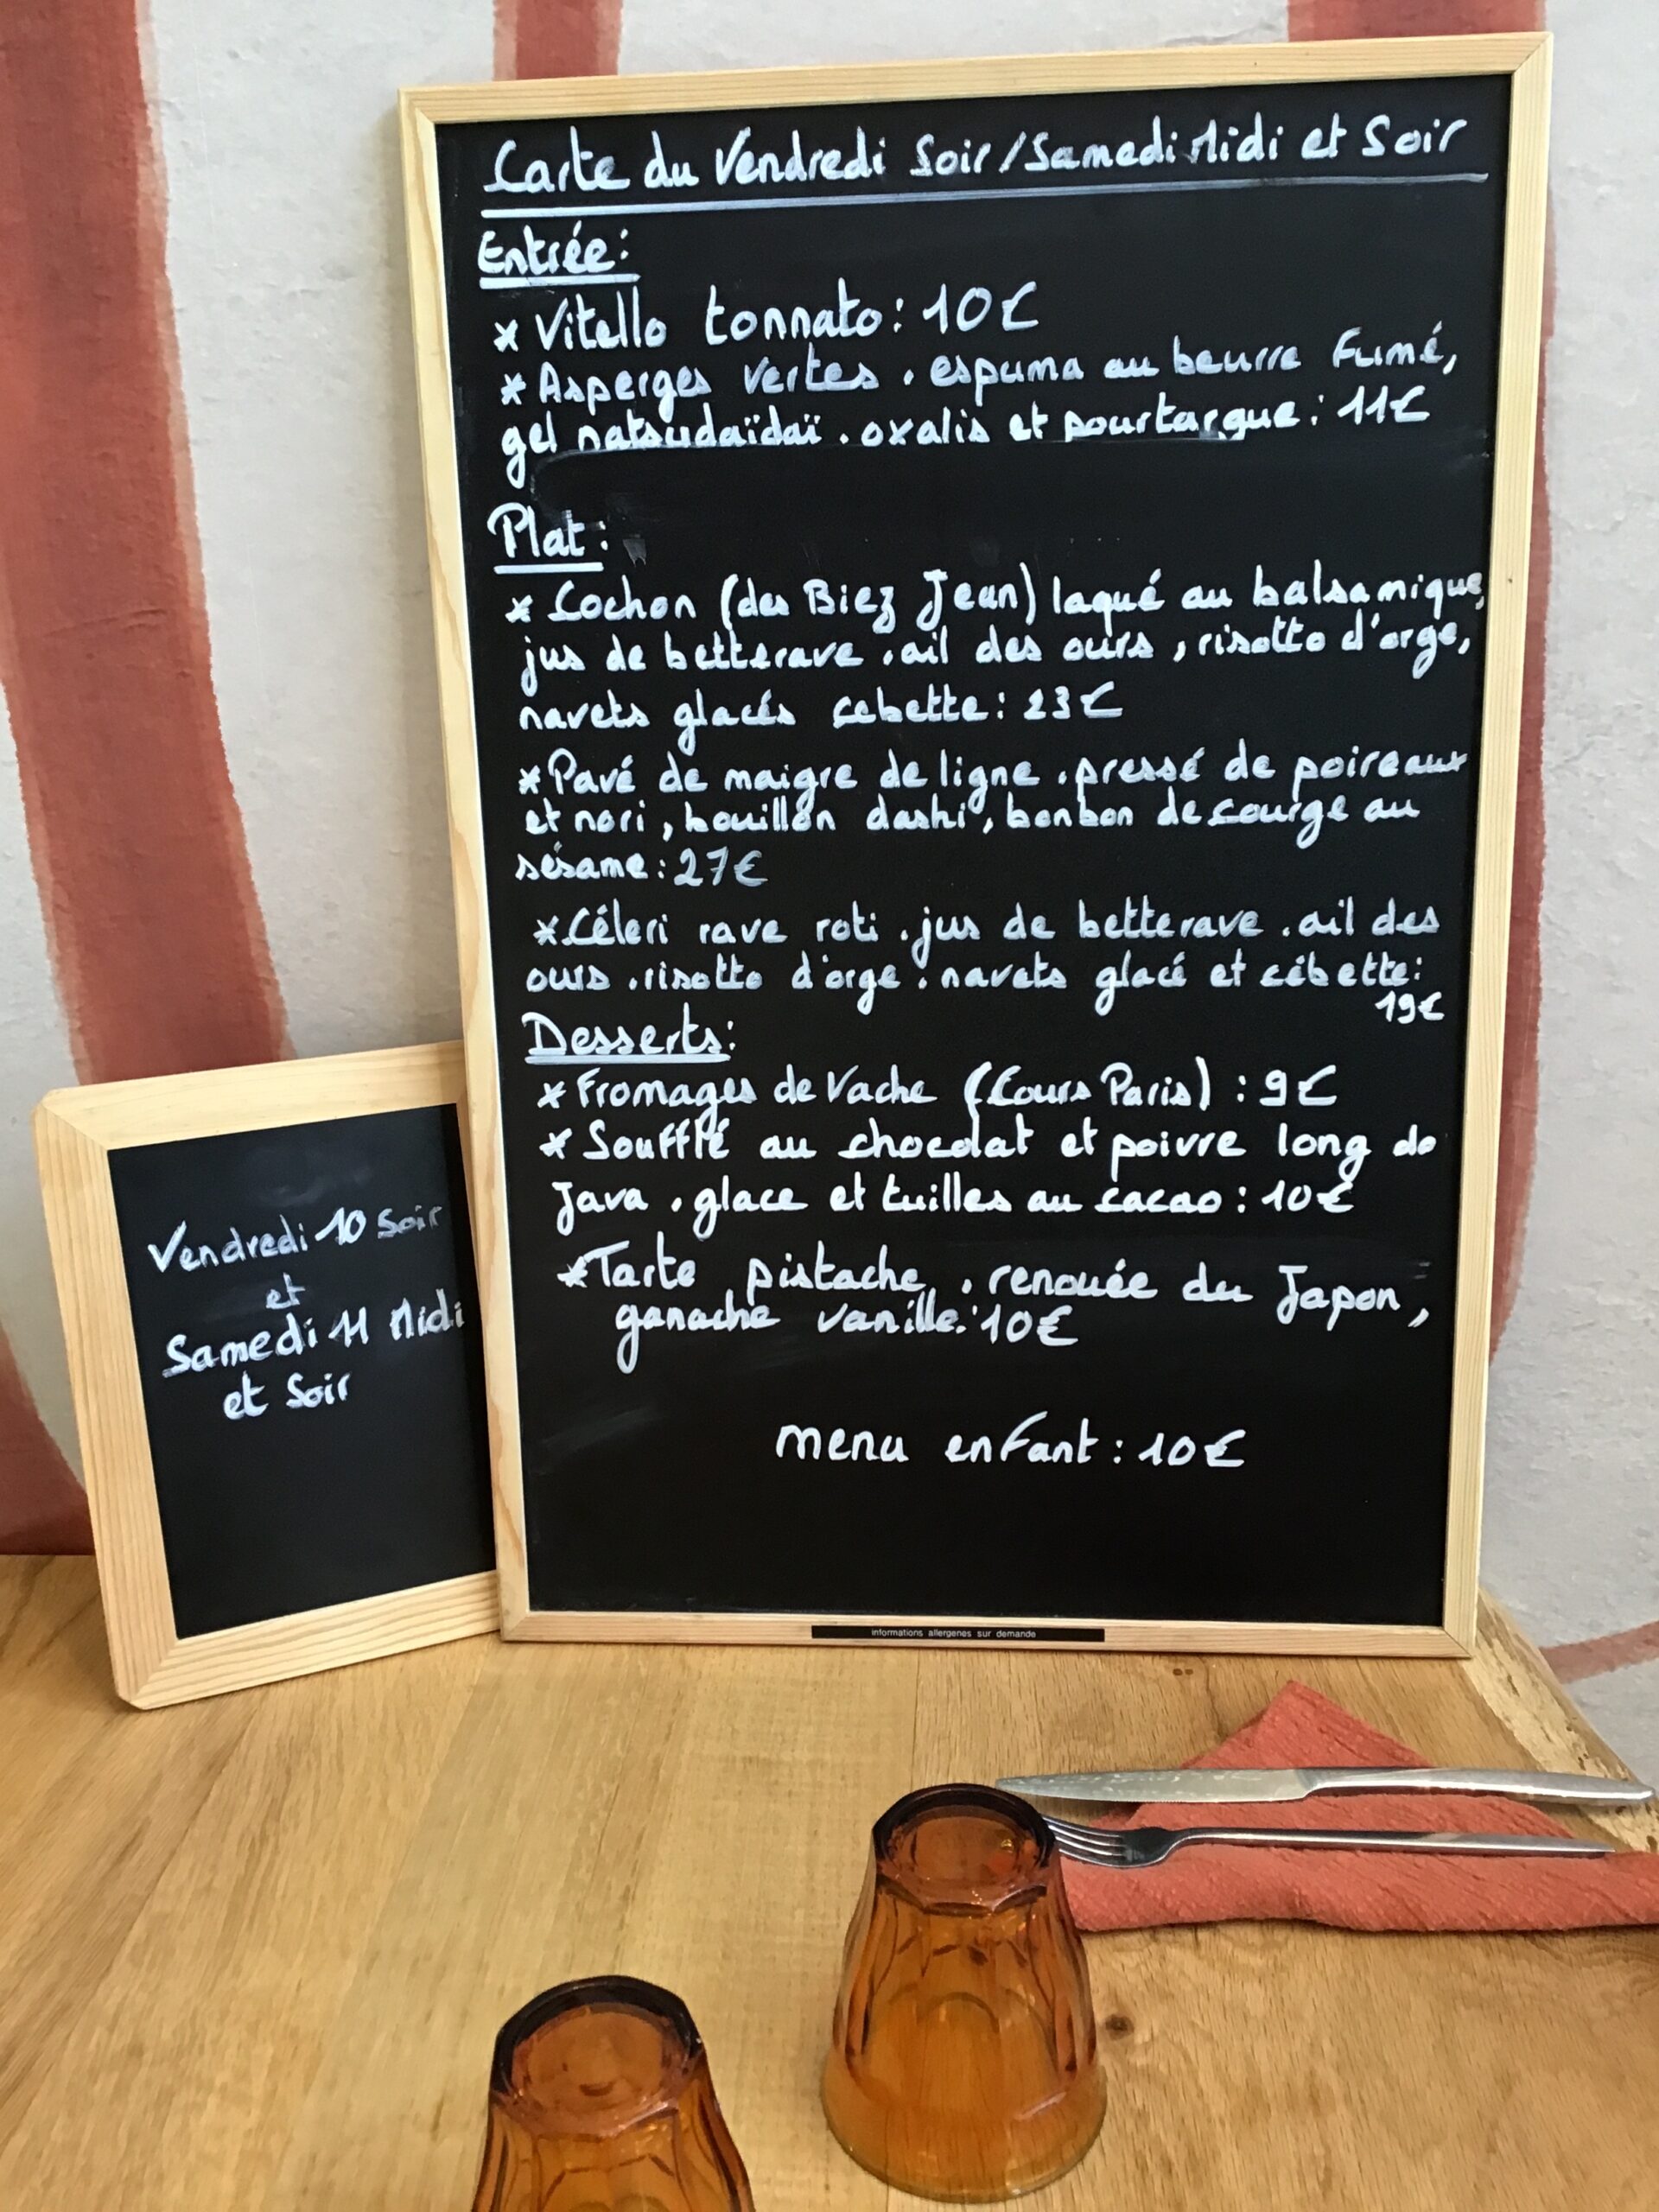 Carte du Vendredi Soir/Samedi Midi et Soir
Entrée:
* Vitello tonnato: 10€
* Asperges vertes, espuma au beurre Fumé,
gel natsudaïdaï, oxalis et pourtargue: 11€
Plat:
* Cochon (des Biez Jean) laqué au balsamique,
jus de betterave, ail des ours, risotto d'orge,
navets glacés cebette: 23€
* Pavé de maigre de ligne, pressé de poireaux
et nori, bouillon dashi, bonbon de courge au
sésame: 27€
* Céleri rave roti, jus de betterave, ail des
ours, risotto d'orge, navets glacé et cébette:
19€
Desserts:
* Fromages de Vache (Cours Paris): 9€
* Soufflé au chocolat et poivre long de
Java, glace et tuilles au cacao: 10€
* Tarte pistache, renouée du Japon,
ganache vanille: 10€
menu enfant: 10€
informations allergenes sur demande
Vendredi 10 Soir
et
Samedi 11 Midi
et Soir